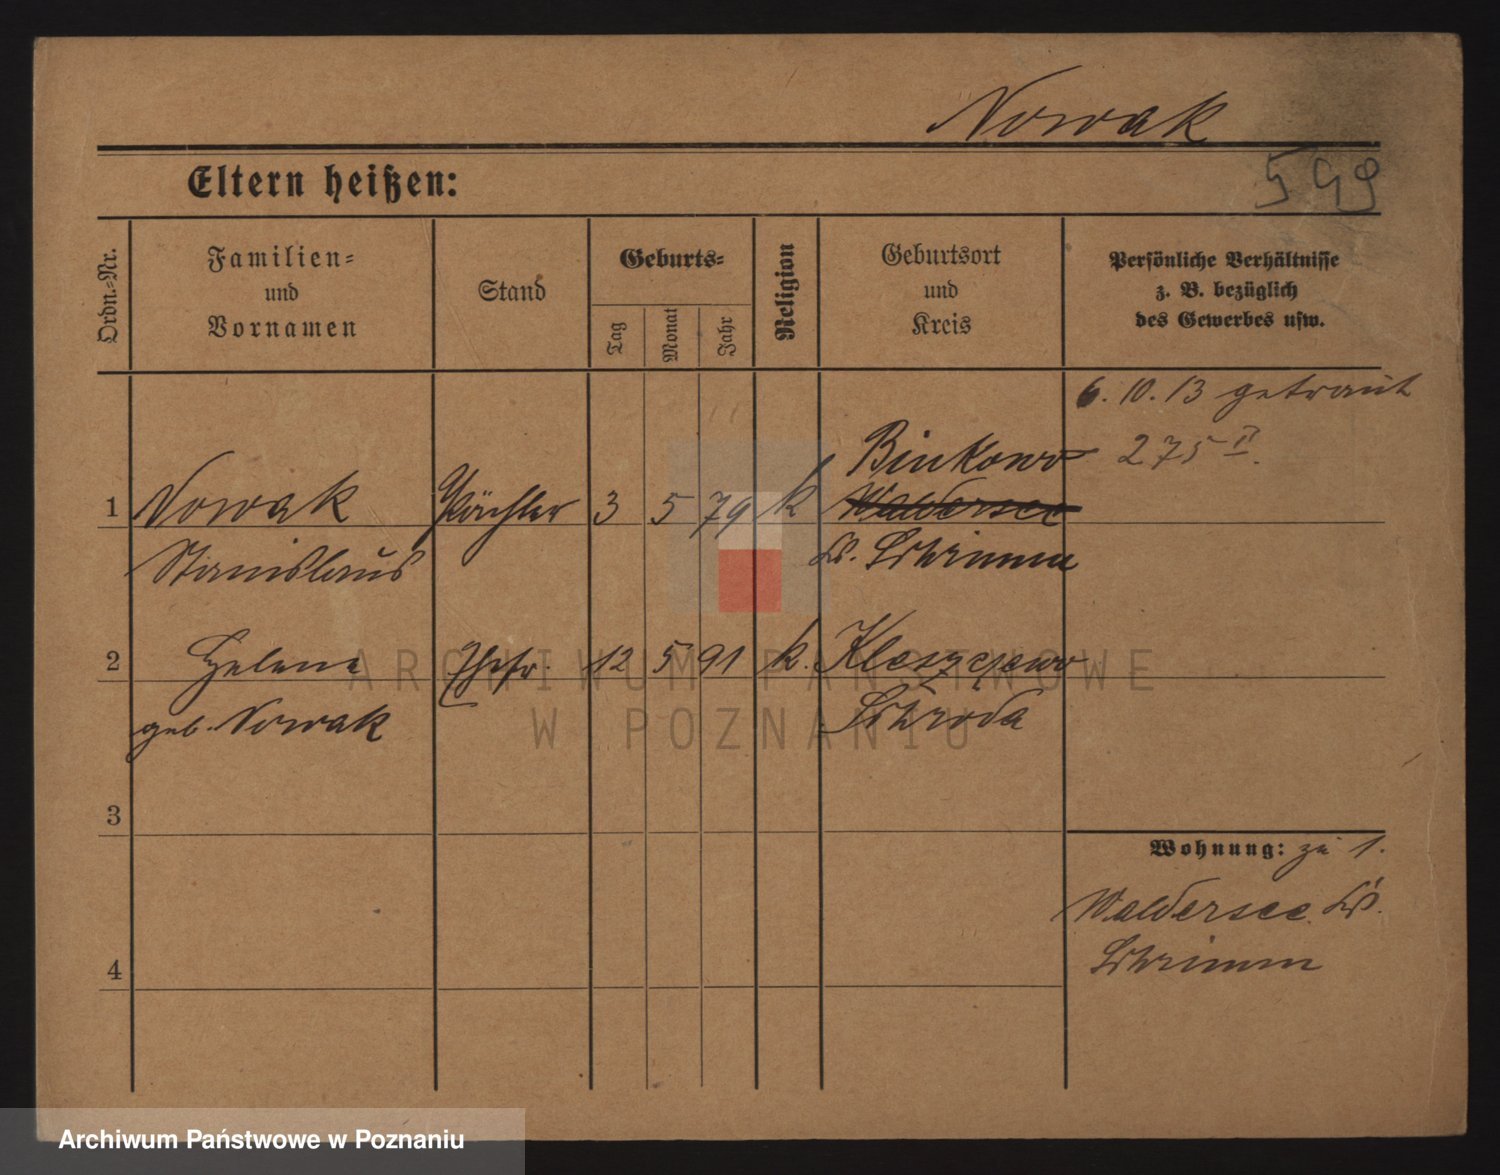 Nowak
599
Eltern heißen:
Ordn.-Nr.
Familien-
und
Vornamen
Stand
Geburts-
Tag
Monat
Jahr
Religion
Geburtsort
und
Kreis
Persönliche Verhältnisse
z. B. bezüglich
des Gewerbes usw.
6. 10. 13 getraut
275 II.
Binkowo
1 Nowak Pächter 3 5 79 k Waldersee
Stanislaus Ks. Schrimm
2 Helene Ehefr. 12 5 91 k. Kleszczewo
geb. Nowak Schroda
3
Wohnung: zu 1.
Waldersee Ks.
Schrimm
4
ARCHIWUM PAŃSTWOWE
W POZNANIU
Archiwum Państwowe w Poznaniu